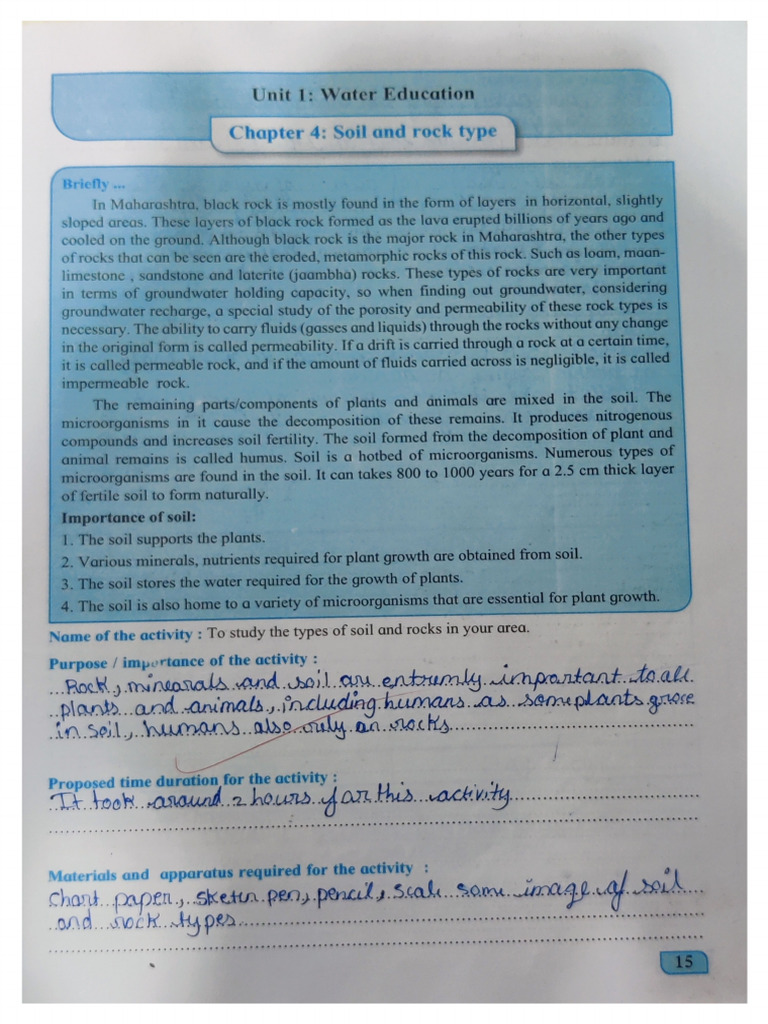 Unit 1: Water Education
Chapter 4: Soil and rock type
Briefly ...
In Maharashtra, black rock is mostly found in the form of layers in horizontal, slightly
sloped areas. These layers of black rock formed as the lava erupted billions of years ago and
cooled on the ground. Although black rock is the major rock in Maharashtra, the other types
of rocks that can be seen are the eroded, metamorphic rocks of this rock. Such as loam, maan-
limestone , sandstone and laterite (jaambha) rocks. These types of rocks are very important
in terms of groundwater holding capacity, so when finding out groundwater, considering
groundwater recharge, a special study of the porosity and permeability of these rock types is
necessary. The ability to carry fluids (gasses and liquids) through the rocks without any change
in the original form is called permeability. If a drift is carried through a rock at a certain time,
it is called permeable rock, and if the amount of fluids carried across is negligible, it is called
impermeable rock.
The remaining parts/components of plants and animals are mixed in the soil. The
microorganisms in it cause the decomposition of these remains. It produces nitrogenous
compounds and increases soil fertility. The soil formed from the decomposition of plant and
animal remains is called humus. Soil is a hotbed of microorganisms. Numerous types of
microorganisms are found in the soil. It can takes 800 to 1000 years for a 2.5 cm thick layer
of fertile soil to form naturally.
Importance of soil:
1. The soil supports the plants.
2. Various minerals, nutrients required for plant growth are obtained from soil.
3. The soil stores the water required for the growth of plants.
4. The soil is also home to a variety of microorganisms that are essential for plant growth.
Name of the activity : To study the types of soil and rocks in your area.
Purpose / importance of the activity :
Rock, minearals and soil are entremly important to all
plants and animals, including humans as some plants grore
in soil, humans also only on rocks
Proposed time duration for the activity :
It took around 2 hours for this activity
Materials and apparatus required for the activity :
Chart paper, sketch pen, pencil, scale some image of soil
and rock types
15